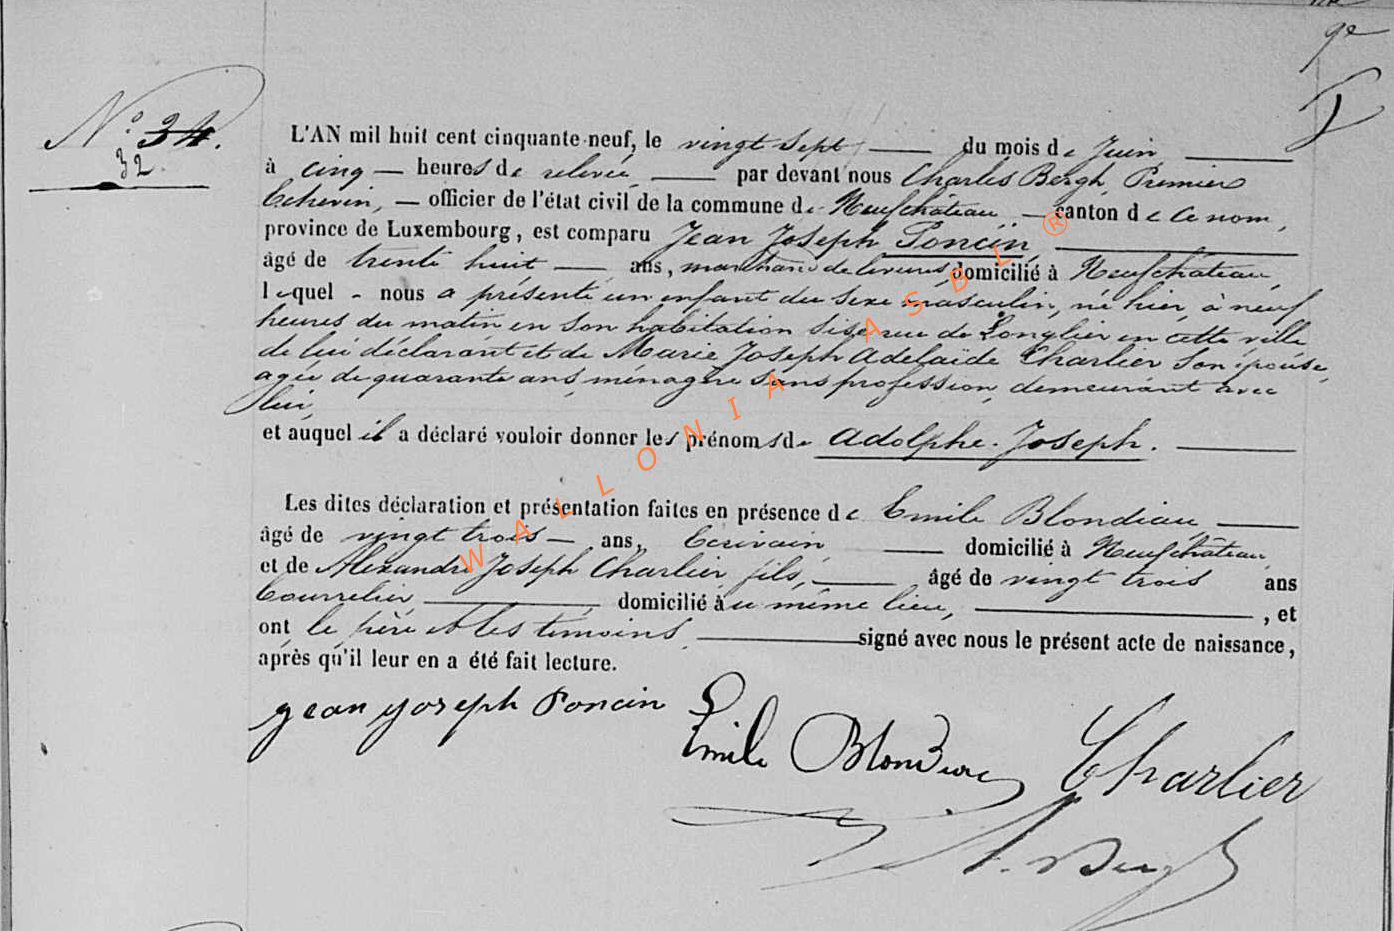 ge
N° 34.
32.
L'AN mil huit cent cinquante-neuf, le vingt sept du mois de Juin
à cinq heures de relevée par devant nous Charles Bergh, Premier
Echevin, officier de l'état civil de la commune de Neufchâteau canton de ce nom,
province de Luxembourg, est comparu Jean Joseph Poncin,
âgé de trente huit ans, marchand de levures domicilié à Neufchâteau,
lequel nous a présenté un enfant du sexe masculin, né hier, à neuf
heures du matin en son habitation sise rue de Longlier en cette ville
de lui déclarant et de Marie Joseph Adelaïde Charlier son épouse,
agée de quarante ans, ménagère sans profession, demeurant avec
lui,
et auquel il a déclaré vouloir donner les prénoms de Adolphe-Joseph.
Les dites déclaration et présentation faites en présence de Emile Blondiau
âgé de vingt trois ans, Ecrivain domicilié à Neufchâteau
et de Alexandre Joseph Charlier fils, âgé de vingt trois ans
Bourrelier domicilié au même lieu, , et
ont le père et les témoins signé avec nous le présent acte de naissance,
après qu'il leur en a été fait lecture.
Jean Joseph Poncin
Emile Blondiau
Charlier
Bergh
WALLONIA ASBL ®